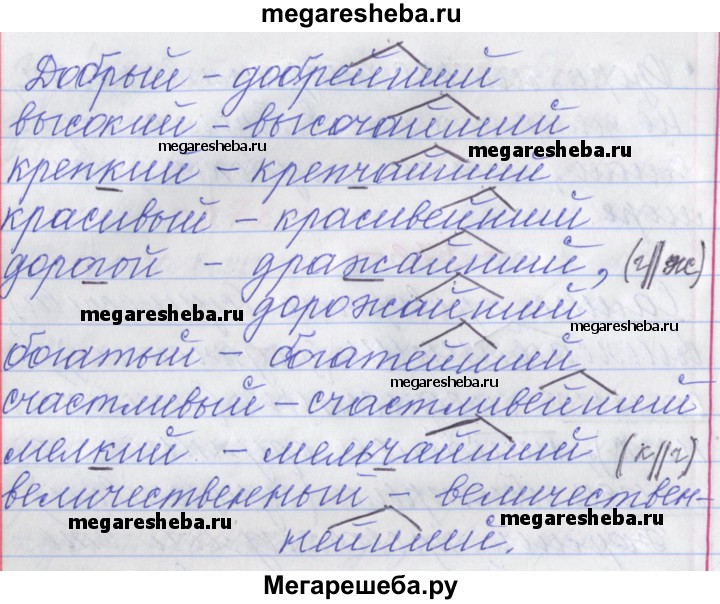 megaresheba.ru
Добрый – добрейший
высокий – высочайший
megaresheba.ru
megaresheba.ru
крепкий – крепчайший
красивый – красивейший
дорогой – дражайший, (г||ж)
megaresheba.ru
дорожайший
megaresheba.ru
богатый – богатейший
megaresheba.ru
счастливый – счастливейший
мелкий – мельчайший (к||ч)
величественный – величествен-
megaresheba.ru
megaresheba.ru
нейший.
Мегарешеба.ру